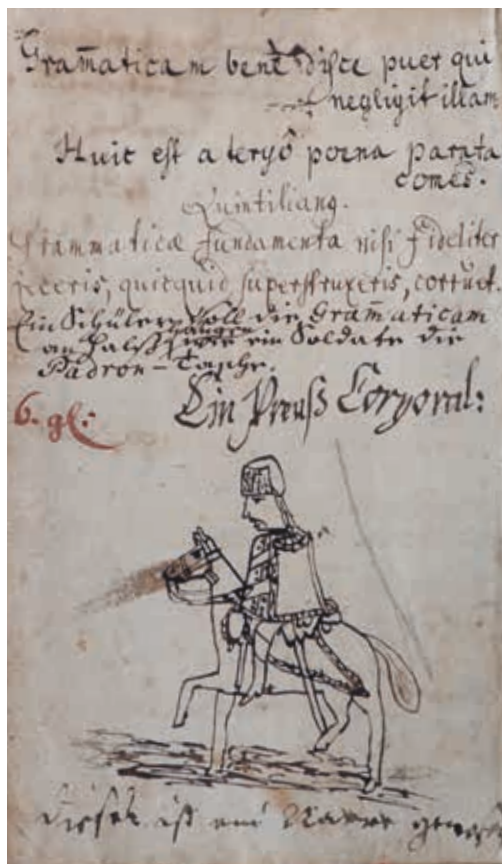 Gram̄aticam benè disce puer qui
negligit illam
Huic est a tergô poena parata
comes.
Quintilianq.
Grammaticæ fundamenta nisi fideliter
jeceris, quicquid superstruxeris, corruet.
Ein Schüler soll die Gram̄aticam
an Halß hangen wie ein Soldate die
Padron-Tasche.
6. gl:
Ein Preuß Corporal:
Dieser ist ein Narre